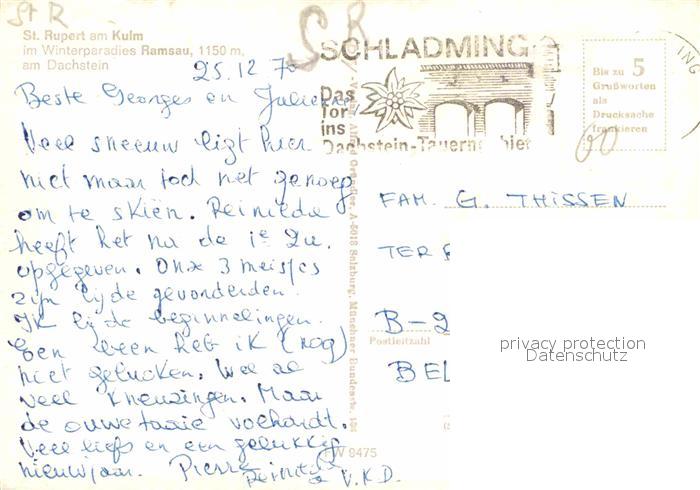 St R
SR
St. Rupert am Kulm
im Winterparadies Ramsau, 1150 m,
am Dachstein
25.12.70
Beste Georges en Julienne
Veel sneeuw ligt hier
niet maar toch net genoeg
om te skiën. Reinilda
heeft het na de 1e Zu.
opgegeven. Onze 3 meisjes
zijn bij de gevorderden.
Ik bij de beginnelingen.
Een been heb ik (nog)
niet gebroken. Wel al
veel kneuzingen. Maar
de ouwe taaie volhardt.
Veel liefs en een gelukkig
nieuwjaar. Pierre
Reinilda
V.K.D.
SCHLADMING
Das
Tor
ins
Dachstein-Tauerngebiet
ING
Bis zu 5
Grußworten
als
Drucksache
frankieren
00
A-5018 Salzburg, Münchner Bundesstr.
FAM. G. THISSEN
TER
B-2
Postleitzahl
BEL
privacy protection
Datenschutz
FW 9475